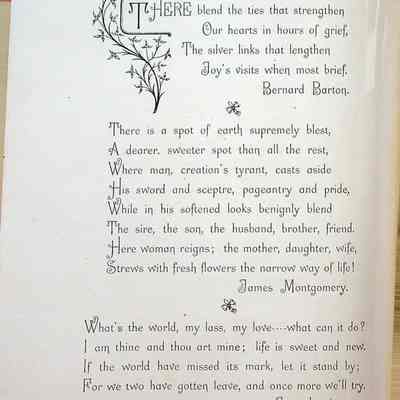 THERE blend the ties that strengthen
Our hearts in hours of grief,
The silver links that lengthen
Joy's visits when most brief.
Bernard Barton.
There is a spot of earth supremely blest,
A dearer, sweeter spot than all the rest,
Where man, creation's tyrant, casts aside
His sword and sceptre, pageantry and pride,
While in his softened looks benignly blend
The sire, the son, the husband, brother, friend.
Here woman reigns; the mother, daughter, wife,
Strews with fresh flowers the narrow way of life!
James Montgomery.
What's the world, my lass, my love----what can it do?
I am thine and thou art mine; life is sweet and new.
If the world have missed its mark, let it stand by;
For we two have gotten leave, and once more we'll try.